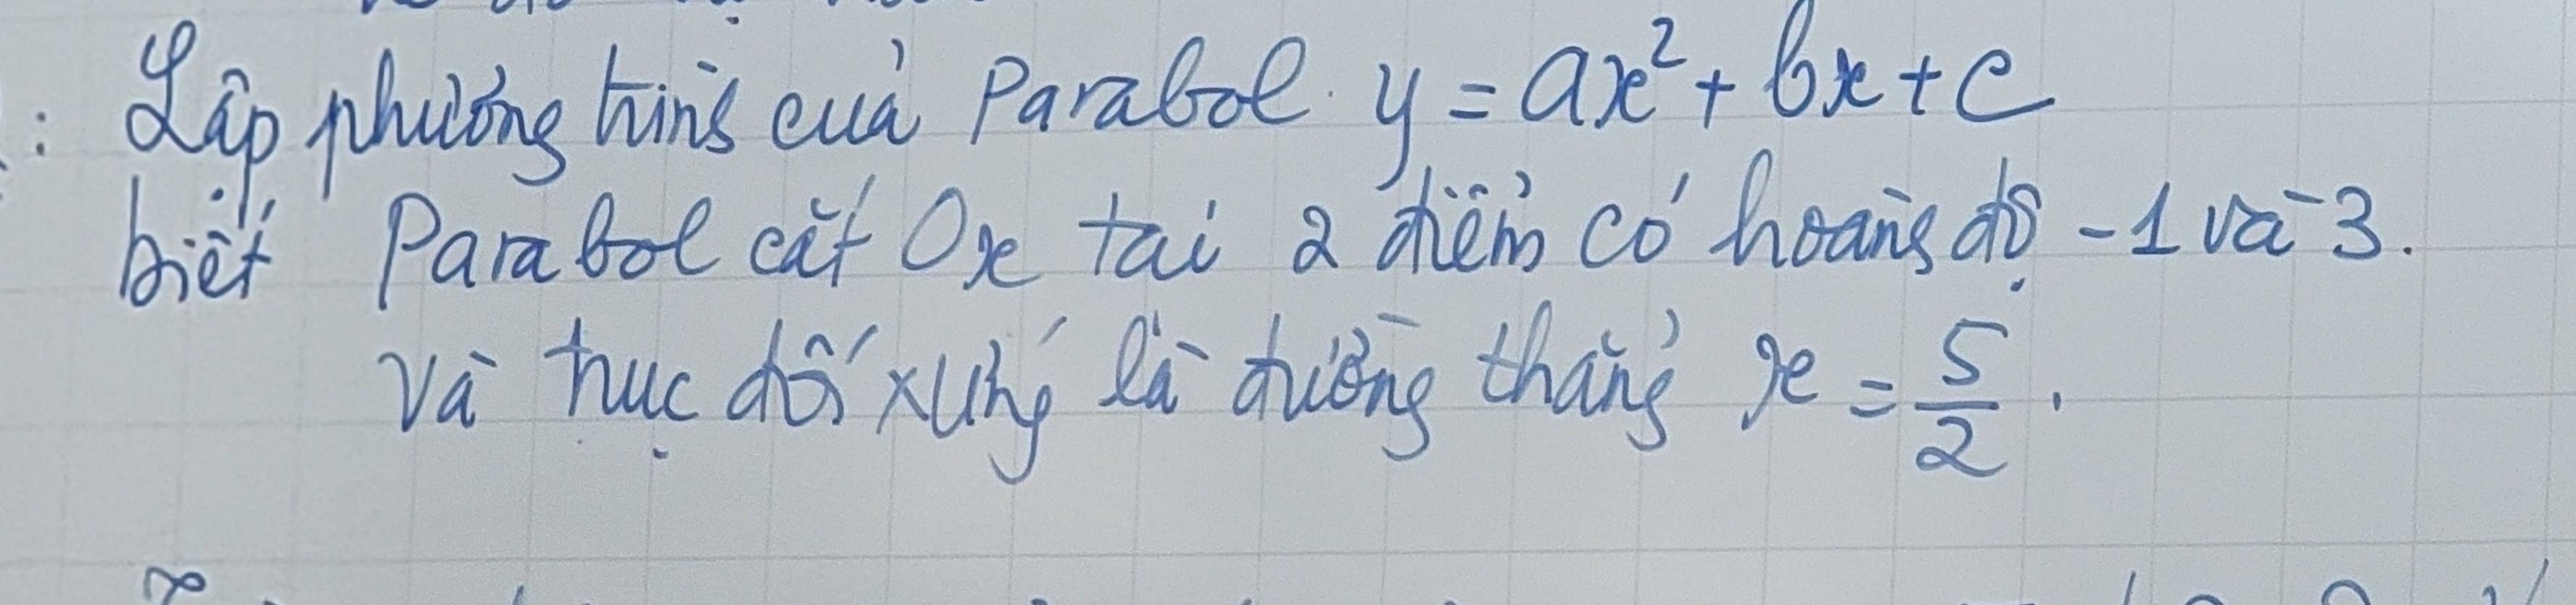 : Lập phương trình của Parabol y = ax² + bx + c
biết Parabol cắt Ox tại 2 điểm có hoành độ -1 và 3.
và trục đối xứng là đường thẳng x = 5/2.